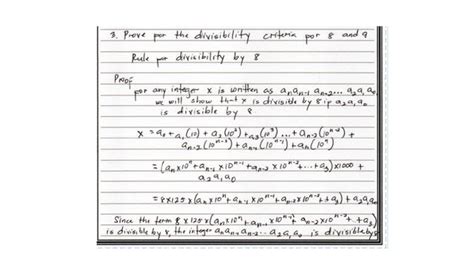 3. Prove por the divisibility criteria por 8 and 9
Rule por divisibility by 8
PROOF
por any integer x is written as aₙaₙ₋₁ aₙ₋₂... a₂a₁a₀
we will show that x is divisible by 8 ip a₂a₁a₀
is divisible by 8
x = a₀ + a₁(10) + a₂(10²) + a₃(10³) ... + aₙ₋₃(10ⁿ⁻³) +
aₙ₋₂(10ⁿ⁻²) + aₙ₋₁(10ⁿ⁻¹) + aₙ(10ⁿ)
= (aₙ×10ⁿ + aₙ₋₁×10ⁿ⁻¹ + aₙ₋₂×10ⁿ⁻² + ... + a₃)×1000 +
a₂a₁a₀
= 8×125×(aₙ×10ⁿ + aₙ₋₁×10ⁿ⁻¹ + aₙ₋₂×10ⁿ⁻² + ... + a₃) + a₂a₁a₀
Since the term 8×125×(aₙ×10ⁿ + aₙ₋₁×10ⁿ⁻¹ + aₙ₋₂×10ⁿ⁻² + ... + a₃)
is divisible by 8, the integer aₙaₙ₋₁aₙ₋₂...a₂a₁a₀ is divisible by 8